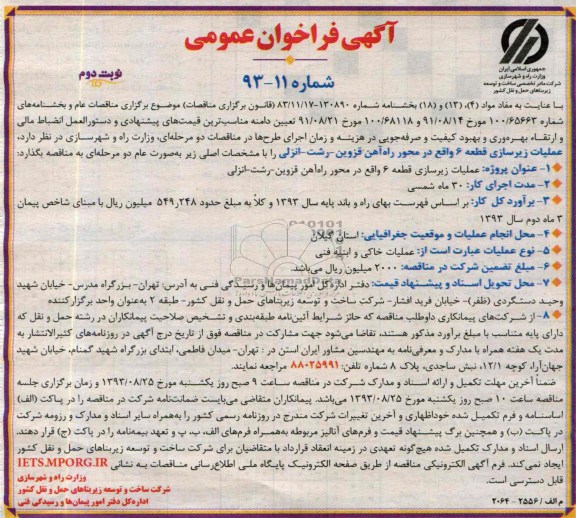 آگهی فراخوان عمومی
شماره ۱۱-۹۳
نوبت دوم
جمهوری اسلامی ایران
وزارت راه و شهرسازی
شرکت مادر تخصصی ساخت و توسعه
زیربناهای حمل و نقل کشور
با عنایت به مفاد مواد (۴)، (۱۳) و (۱۸) بخشنامه شماره ۱۳۰۸۹۰-۸۳/۱۱/۱۷ (قانون برگزاری مناقصات) موضوع برگزاری مناقصات عام و بخشنامه‌های
شماره ۱۰۰/۶۵۶۶۳ مورخ ۹۱/۰۸/۱۴ و ۱۰۰/۶۸۱۱۸ مورخ ۹۱/۰۸/۲۱ تعیین دامنه مناسب‌ترین قیمت‌های پیشنهادی و دستورالعمل انضباط مالی
و ارتقاء بهره‌وری و بهبود کیفیت و صرفه‌جویی در هزینه و زمان اجرای طرح‌ها در مناقصات دو مرحله‌ای، وزارت راه و شهرسازی در نظر دارد،
عملیات زیرسازی قطعه ۶ واقع در محور راه‌آهن قزوین-رشت-انزلی را با مشخصات اصلی زیر به‌صورت عام دو مرحله‌ای به مناقصه بگذارد:
۱- عنوان پروژه: عملیات زیرسازی قطعه ۶ واقع در محور راه‌آهن قزوین-رشت-انزلی
۲- مدت اجرای کار: ۳۰ ماه شمسی
۳- برآورد کل کار: بر اساس فهرست بهای راه و باند پایه سال ۱۳۹۳ و کلاً به مبلغ حدود ۵۴۹٫۲۴۸ میلیون ریال با مبنای شاخص پیمان
۳ ماهه دوم سال ۱۳۹۳
۴- محل انجام عملیات و موقعیت جغرافیایی: استان گیلان
۵- نوع عملیات عبارت است از: عملیات خاکی و ابنیه فنی
۶- مبلغ تضمین شرکت در مناقصه: ۲۰۰۰ میلیون ریال می‌باشد.
۷- محل تحویل اسناد و پیشنهاد قیمت: دفتر اداره‌کل امور پیمان‌ها و رسیدگی فنی به آدرس: تهران- بزرگراه مدرس- خیابان شهید
وحید دستگردی (ظفر)- خیابان فرید افشار- شرکت ساخت و توسعه زیربناهای حمل و نقل کشور- طبقه ۲ به‌عنوان واحد برگزارکننده
۸- از شرکت‌های پیمانکاری داوطلب مناقصه که حائز شرایط آئین‌نامه طبقه‌بندی و تشخیص صلاحیت پیمانکاران در رشته حمل و نقل که
دارای پایه متناسب با مبلغ برآورد مذکور هستند، تقاضا می‌شود جهت مشارکت در مناقصه فوق از تاریخ درج آگهی در روزنامه‌های کثیرالانتشار به
مدت یک هفته همراه با مدارک و معرفی‌نامه به مهندسین مشاور ایران استن در : تهران- میدان فاطمی، ابتدای بزرگراه شهید گمنام، خیابان شهید
جهان‌آرا، کوچه ۱۲/۱، نبش ساجدی، پلاک ۸ شماره تلفن: ۸۸۰۲۵۹۹۱ مراجعه نمایند.
ضمناً آخرین مهلت تکمیل و ارائه اسناد و مدارک شرکت در مناقصه ساعت ۹ صبح روز یکشنبه مورخ ۱۳۹۳/۰۸/۲۵ و زمان برگزاری جلسه
مناقصه ساعت ۱۰ صبح روز یکشنبه مورخ ۱۳۹۳/۰۸/۲۵ می‌باشد. پیمانکاران متقاضی می‌بایست ضمانت‌نامه شرکت در مناقصه را در پاکت (الف)
اساسنامه و فرم تکمیل شده خوداظهاری و آخرین تغییرات شرکت مندرج در روزنامه رسمی کشور را به‌همراه سایر اسناد و مدارک و رزومه شرکت
در پاکت (ب) و همچنین برگ پیشنهاد قیمت و فرم‌های آنالیز مربوطه به‌همراه فرم‌های الف، ب، پ و تعهد بیمه‌نامه را در پاکت (ج) قرار دهند.
ارسال اسناد و مدارک تکمیل شده هیچ‌گونه تعهدی در زمینه انعقاد قرارداد با متقاضیان برای شرکت ساخت و توسعه زیربناهای حمل و نقل کشور
ایجاد نمی‌کند. فرم آگهی الکترونیکی مناقصه از طریق صفحه الکترونیک پایگاه ملی اطلاع‌رسانی مناقصات به نشانی IETS.MPORG.IR
قابل دسترسی است.
وزارت راه و شهرسازی
شرکت ساخت و توسعه زیربناهای حمل و نقل کشور
اداره‌کل دفتر امور پیمان‌ها و رسیدگی فنی
م الف / ۲۵۵۶ - ۲۰۶۴